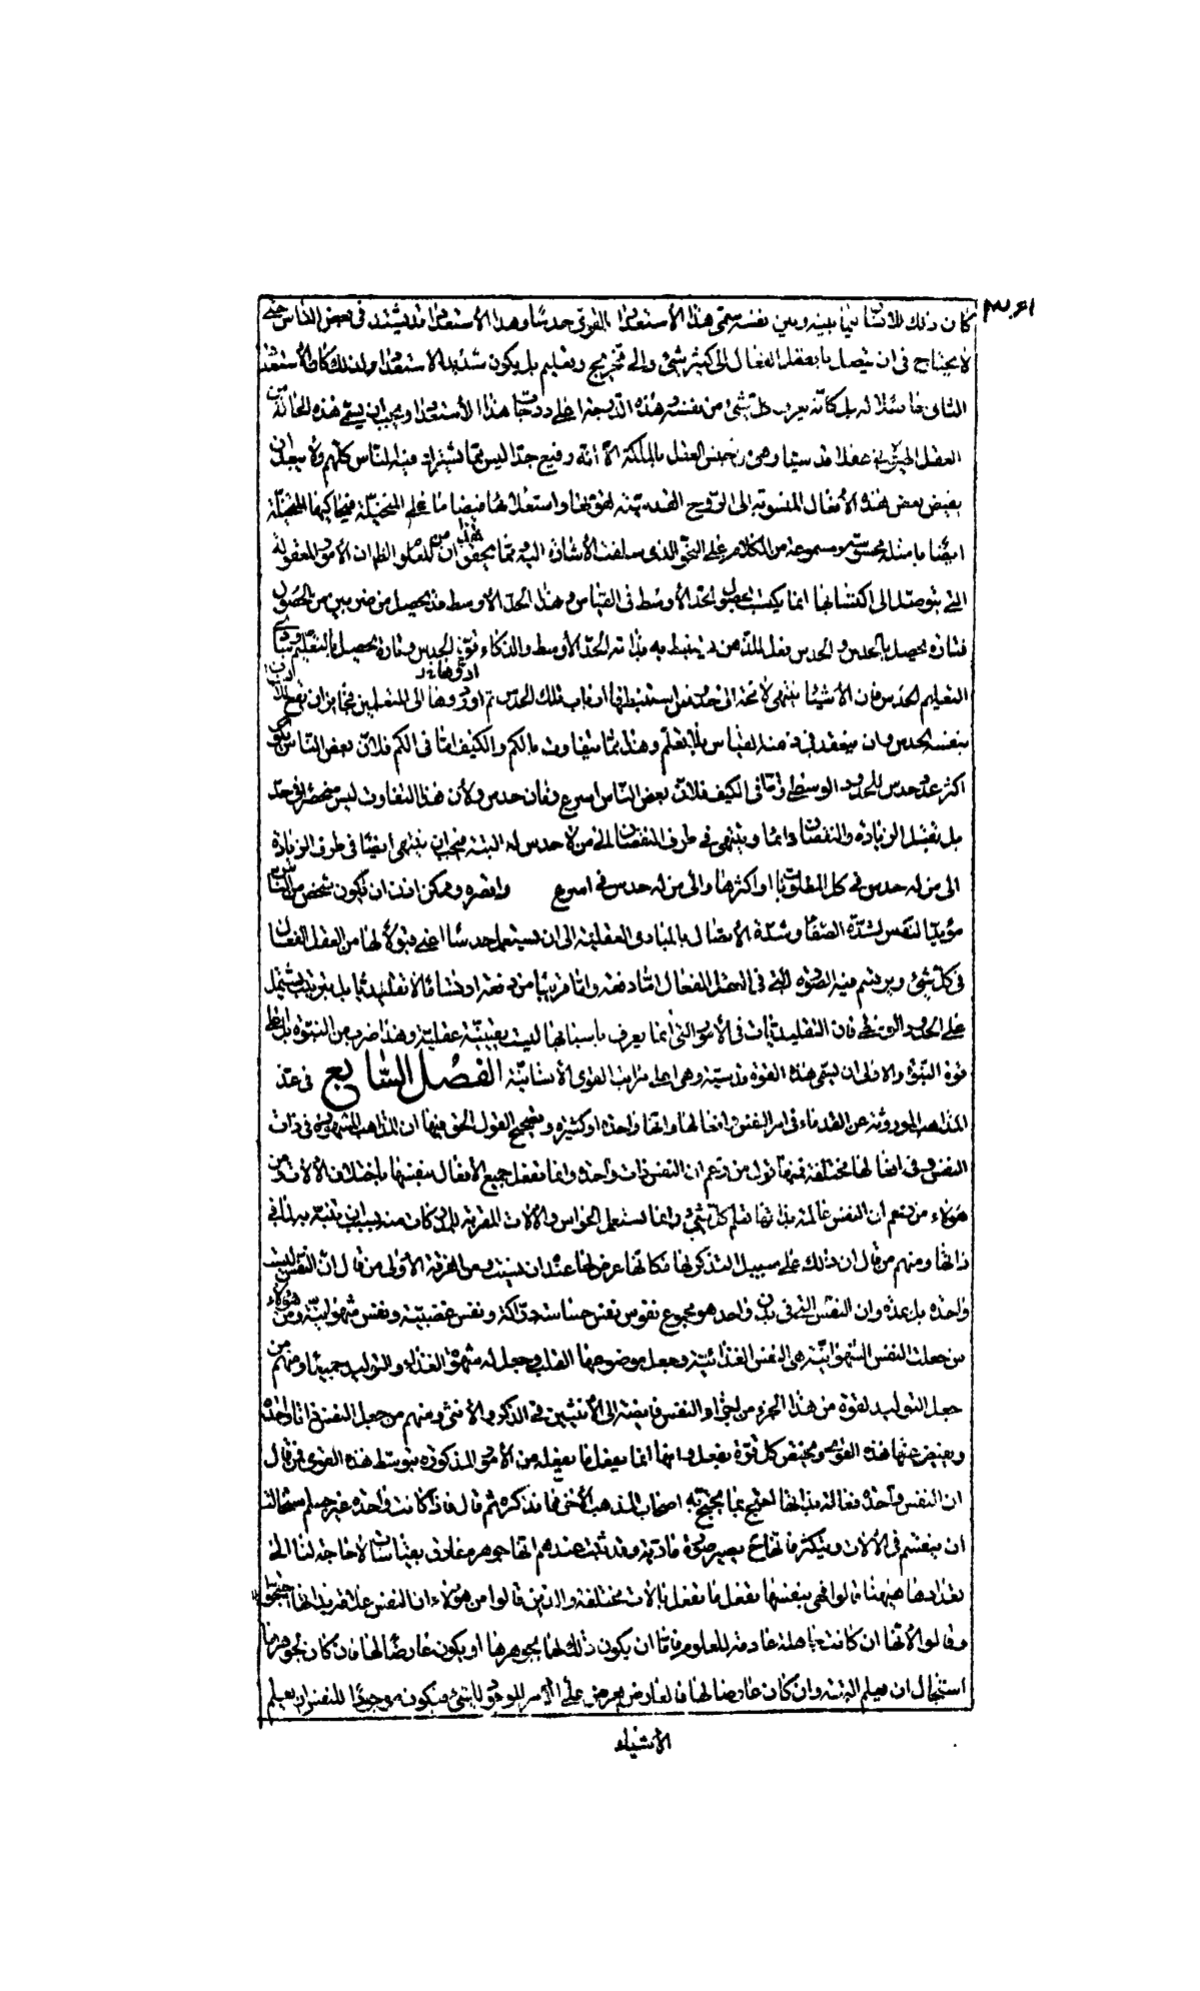 ٣٦١
كان ذلك للانسان فيما بينه وبين نفسه سمّى هذا الاستعداد القوى حدسا وهذا الاستعداد قد يشتد فى بعض الناس حتى
لا يحتاج فى ان يتصل بالعقل الفعال الى كثير شىء والى تخريج وتعليم بل يكون شديد الاستعداد لذلك كان الاستعداد
الثانى حاصلا له بل كانّه يعرف كل شىء من نفسه وهذه الدرجة اعلى درجات هذا الاستعداد ويجب ان يسمّى هذه الحالة من
العقل الهيولانى عقلا قدسيا وهى من جنس العقل بالملكة الّا انّه رفيع جدّا ليس ممّا يشترك فيه الناس كلّهم ولا يبعد ان
يفيض بعض هذه الافعال المنسوبة الى الروح القدسيّة لقوّتها واستعلائها فيضانا على المتخيّلة فيحاكيها المتخيّلة
ايضا بامثلة محسوسة ومسموعة من الكلام على النحو الذى سلفت الاشارة اليه وممّا يحقّق هذا ان من المعلوم الظاهر ان الامور المعقولة
التى يتوصّل الى اكتسابها انما يكتسب بحصول الحدّ الاوسط فى القياس وهذا الحدّ الاوسط قد يحصل من ضربين من الحصول
فتارة يحصل بالحدس والحدس فعل للذهن يستنبط به بذاته الحدّ الاوسط والذكاء قوّة الحدس وتارة يحصل بالتعليم ومبادى
التعليم الحدس فان الاشياء تنتهى لا محالة الى حدوس استنبطها ارباب تلك الحدوس ثم ادّوها الى المتعلمين فجائز ان يقع للانسان
بنفسه الحدس وان ينعقد فى ذهنه القياس بلا معلّم وهذا ممّا يتفاوت بالكم والكيف امّا فى الكم فلان بعض الناس يكون
اكثر عدد حدس للحدود الوسطى وامّا فى الكيف فلان بعض الناس اسرع زمان حدس ولان هذا التفاوت ليس منحصرا فى حدّ
بل يقبل الزيادة والنقصان دائما وينتهى فى طرف النقصان الى من لا حدس له البتة فيجب ان ينتهى ايضا فى طرف الزيادة
الى من له حدس فى كل المطلوبات او اكثرها والى من له حدس فى اسرع واقصره ويمكن اذن ان يكون شخص من الناس
مؤيد النفس لشدّة الصفاء وشدّة الاتصال بالمبادى العقلية الى ان يشتعل حدسا اعنى قبولا لها من العقل الفعال
فى كلّ شىء ويرتسم فيه الصورة التى فى العقل الفعال امّا دفعة وامّا قريبا من دفعة ارتساما لا تقليديّا بل بترتيب يشتمل
على الحدود الوسطى فان التقليديات فى الامور التى انما يعرف باسبابها ليست يقينيّة عقليّة وهذا ضرب من النبوّة بل اعلى
قوة النبوّة والاولى ان يسمّى هذه القوة قدسيّة وهى اعلى مراتب القوى الانسانيّة الفصل السابع فى عدّ
المذاهب الموروثة عن القدماء فى امر النفس وافعالها وانّها واحدة او كثيرة وتصحيح القول الحق فيها ان المذاهب المشهورة فى ذات
النفس وفى افعالها مختلفة فمنها قول من زعم ان النفس ذات واحدة وانما تفعل جميع الافعال بنفسها باختلاف الآلات ومن
هؤلاء من زعم ان النفس عالمة بذاتها تعلم كلّ شىء وانما تستعمل الحواس والآلات المقربة للمدركات منه بسبب ان يتنبّه به لما فى
ذاتها ومنهم من قال ان ذلك على سبيل التذكر لها فكانّها عرض لها عنده ان نسيت ومن الفرقة الاولى من قال انّ النفس ليست
واحدة بل عدّة وان النفس التى فى بدن واحد هو مجموع نفوس نفس حسّاسة درّاكة ونفس غضبيّة ونفس شهوانيّة ومن هؤلاء
من جعلت النفس الشهوانيّة هى النفس الغذائيّة وجعل موضوعها القلب وجعل له شهوة الغذاء والتوليد جميعا ومنهم من
جعل التوليد لقوة من هذا الجزء من اجزاء النفس فايضة الى الانثيين فى الذكر والانثى ومنهم من جعل النفس ذاتا واحدة
ويفيض عنها هذه القوى ويختص كل قوّة بفعل وانّها انما يفعل ما يفعله من الامور المذكورة بتوسط هذه القوى فمن قال
ان النفس واحدة فعالة بذاتها احتج بما يحتج به اصحاب المذهب الاخر ممّا نذكره ثم قال فاذا كانت واحدة غير جسم استحالت
ان ينقسم فى الآلات ويتكثر فانّها ح يصير صورة مادّية وقد ثبت عندهم انها جوهر مفارق بقياسات لا حاجة لنا الى
تعدادها هيهنا قالوا فهى بنفسها تفعل ما تفعل بآلات مختلفة والذين قالوا من هؤلاء ان النفس علّامة بذاتها احتجّوا
وقالوا لانّها ان كانت جاهلة عادمة للعلوم فامّا ان يكون ذلك لها بجوهرها او يكون عارضا لها فان كان لجوهرها
استحال ان يعلم البتة وان كان عارضا لها فالعارض يعرض على الامر الموجود للشىء فيكون موجودا للنفس ان يعلم
الاشياء